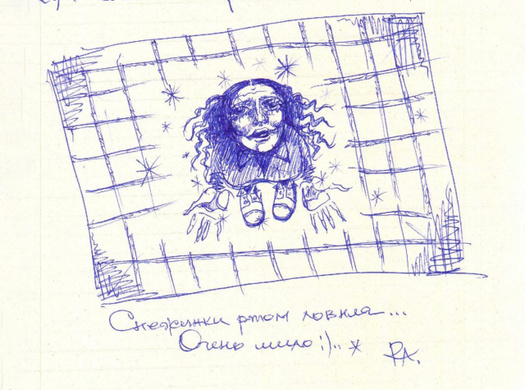 Снежинки ртом ловила...
Очень мило :)..*
РА.